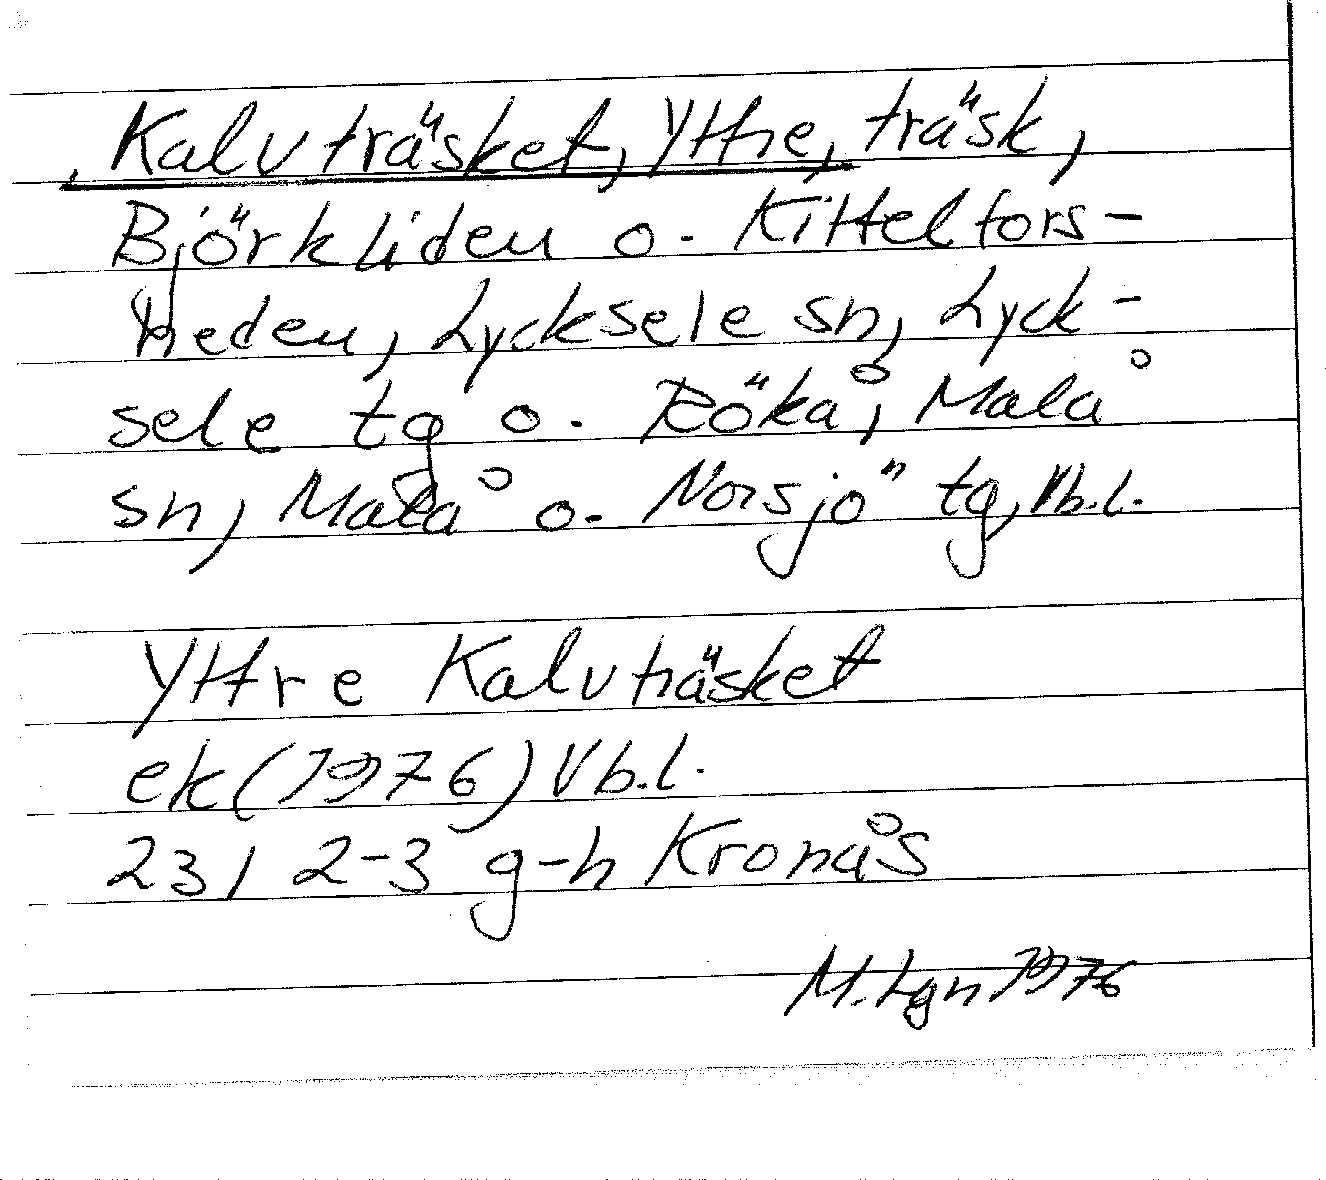 Kalvträsket, Yttre, träsk,
Björkliden o. Kittelfors-
heden, Lycksele sn, Lyck-
sele tg o. Rökå, Malå
sn, Malå o. Norsjö tg, Vb.l.
Yttre Kalvträsket
ek (1976) Vb.l.
23I 2-3 g-h Kronås
M. Lgn 1976